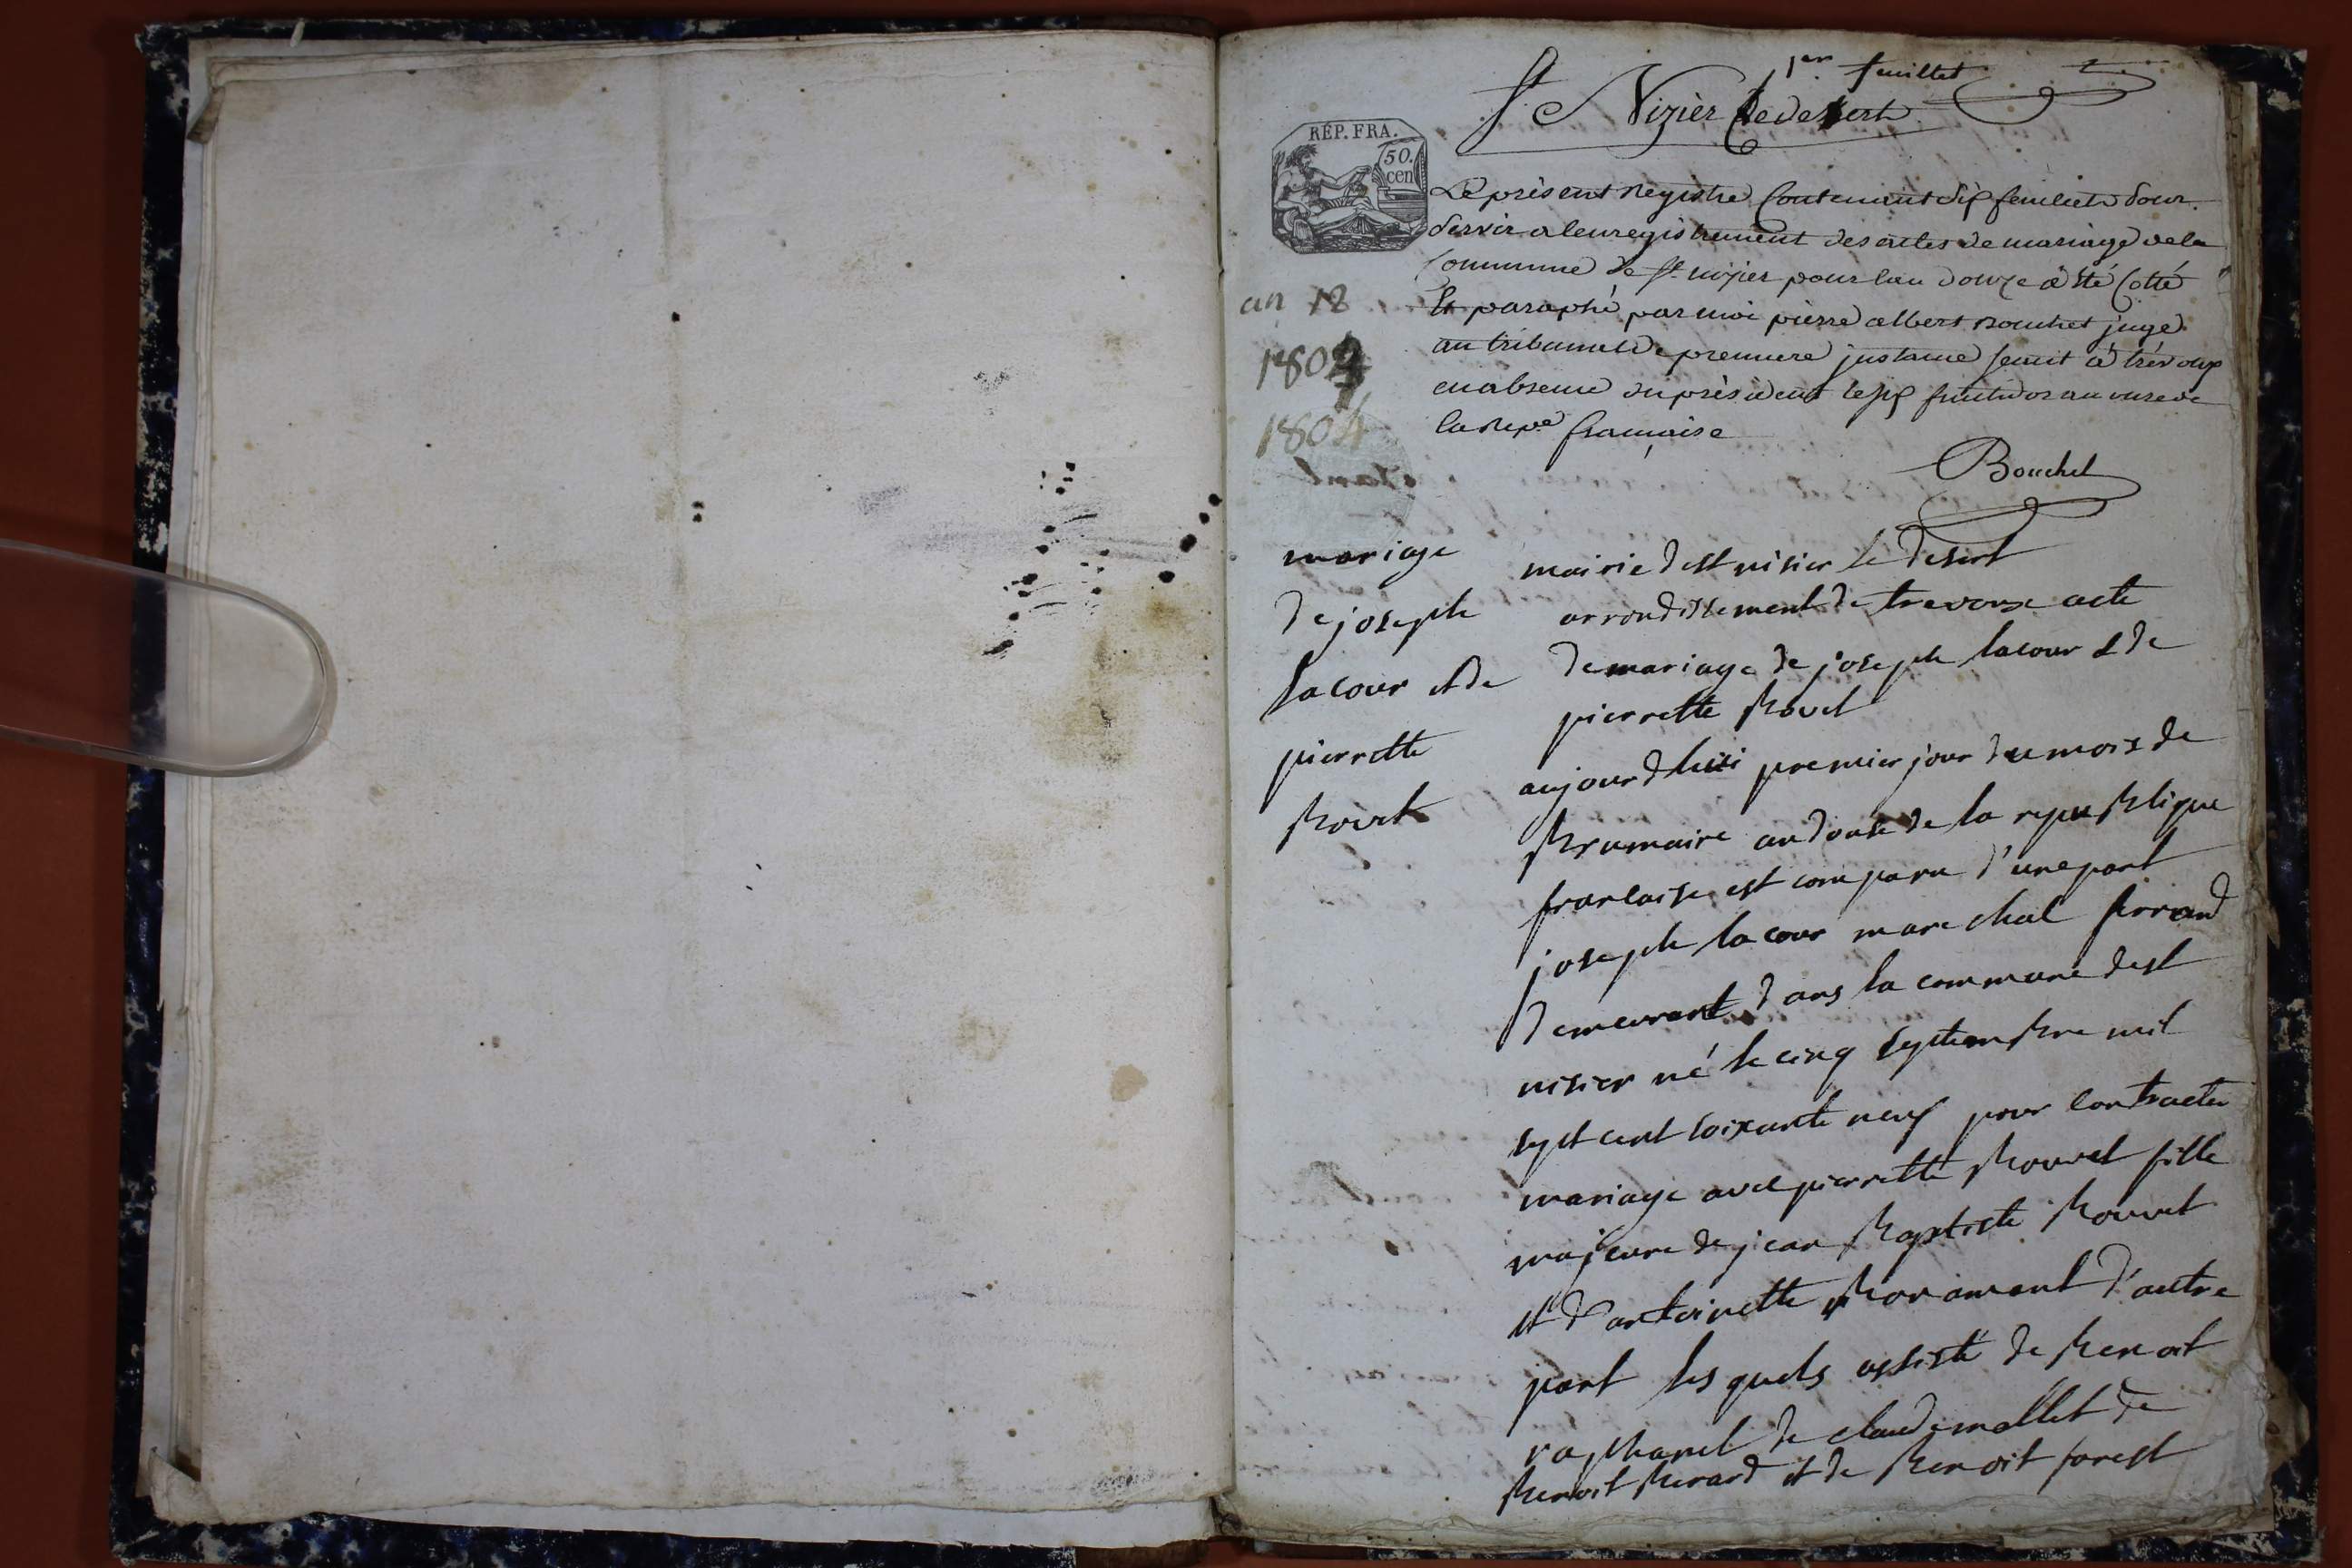 1er feuillet
St Nizier le desert
RÉP. FRA.
50.
cen
Le présent Registre Contenant dix feuilets pour
Servir a lenregistrement des actes de mariage de la
Commune de St nizier pour lan douze a été Cotté
Et paraphé par moi pierre albert Bouchet juge
au tribunal de premiere instance séant à trévoux
en absence du président le fructidor an onze de
la Repe. française
Bouchet
an 12
1803
1804
mariage
de joseph
lacour et de
pierrette
Bovet
mairie de st nisier le desert
arrondissement de trevoux acte
de mariage de joseph lacour & de
pierrette Bovet
aujourdhui premier jour du mois de
Brumaire an douse de la republique
francaise est comparu d'une part
joseph lacour marechal ferrand
demeurant dans la commune de st
nisier né le cinq septembre mil
sept cent soixante neuf pour contracter
mariage avec pierrette Bouvet fille
majeure de jean Baptiste Bouvet
et d'antoinette Bonamant d'autre
part les quels assisté de Benoit
raphanel de claude mallet de
Benoit Berard et de Benoit forest